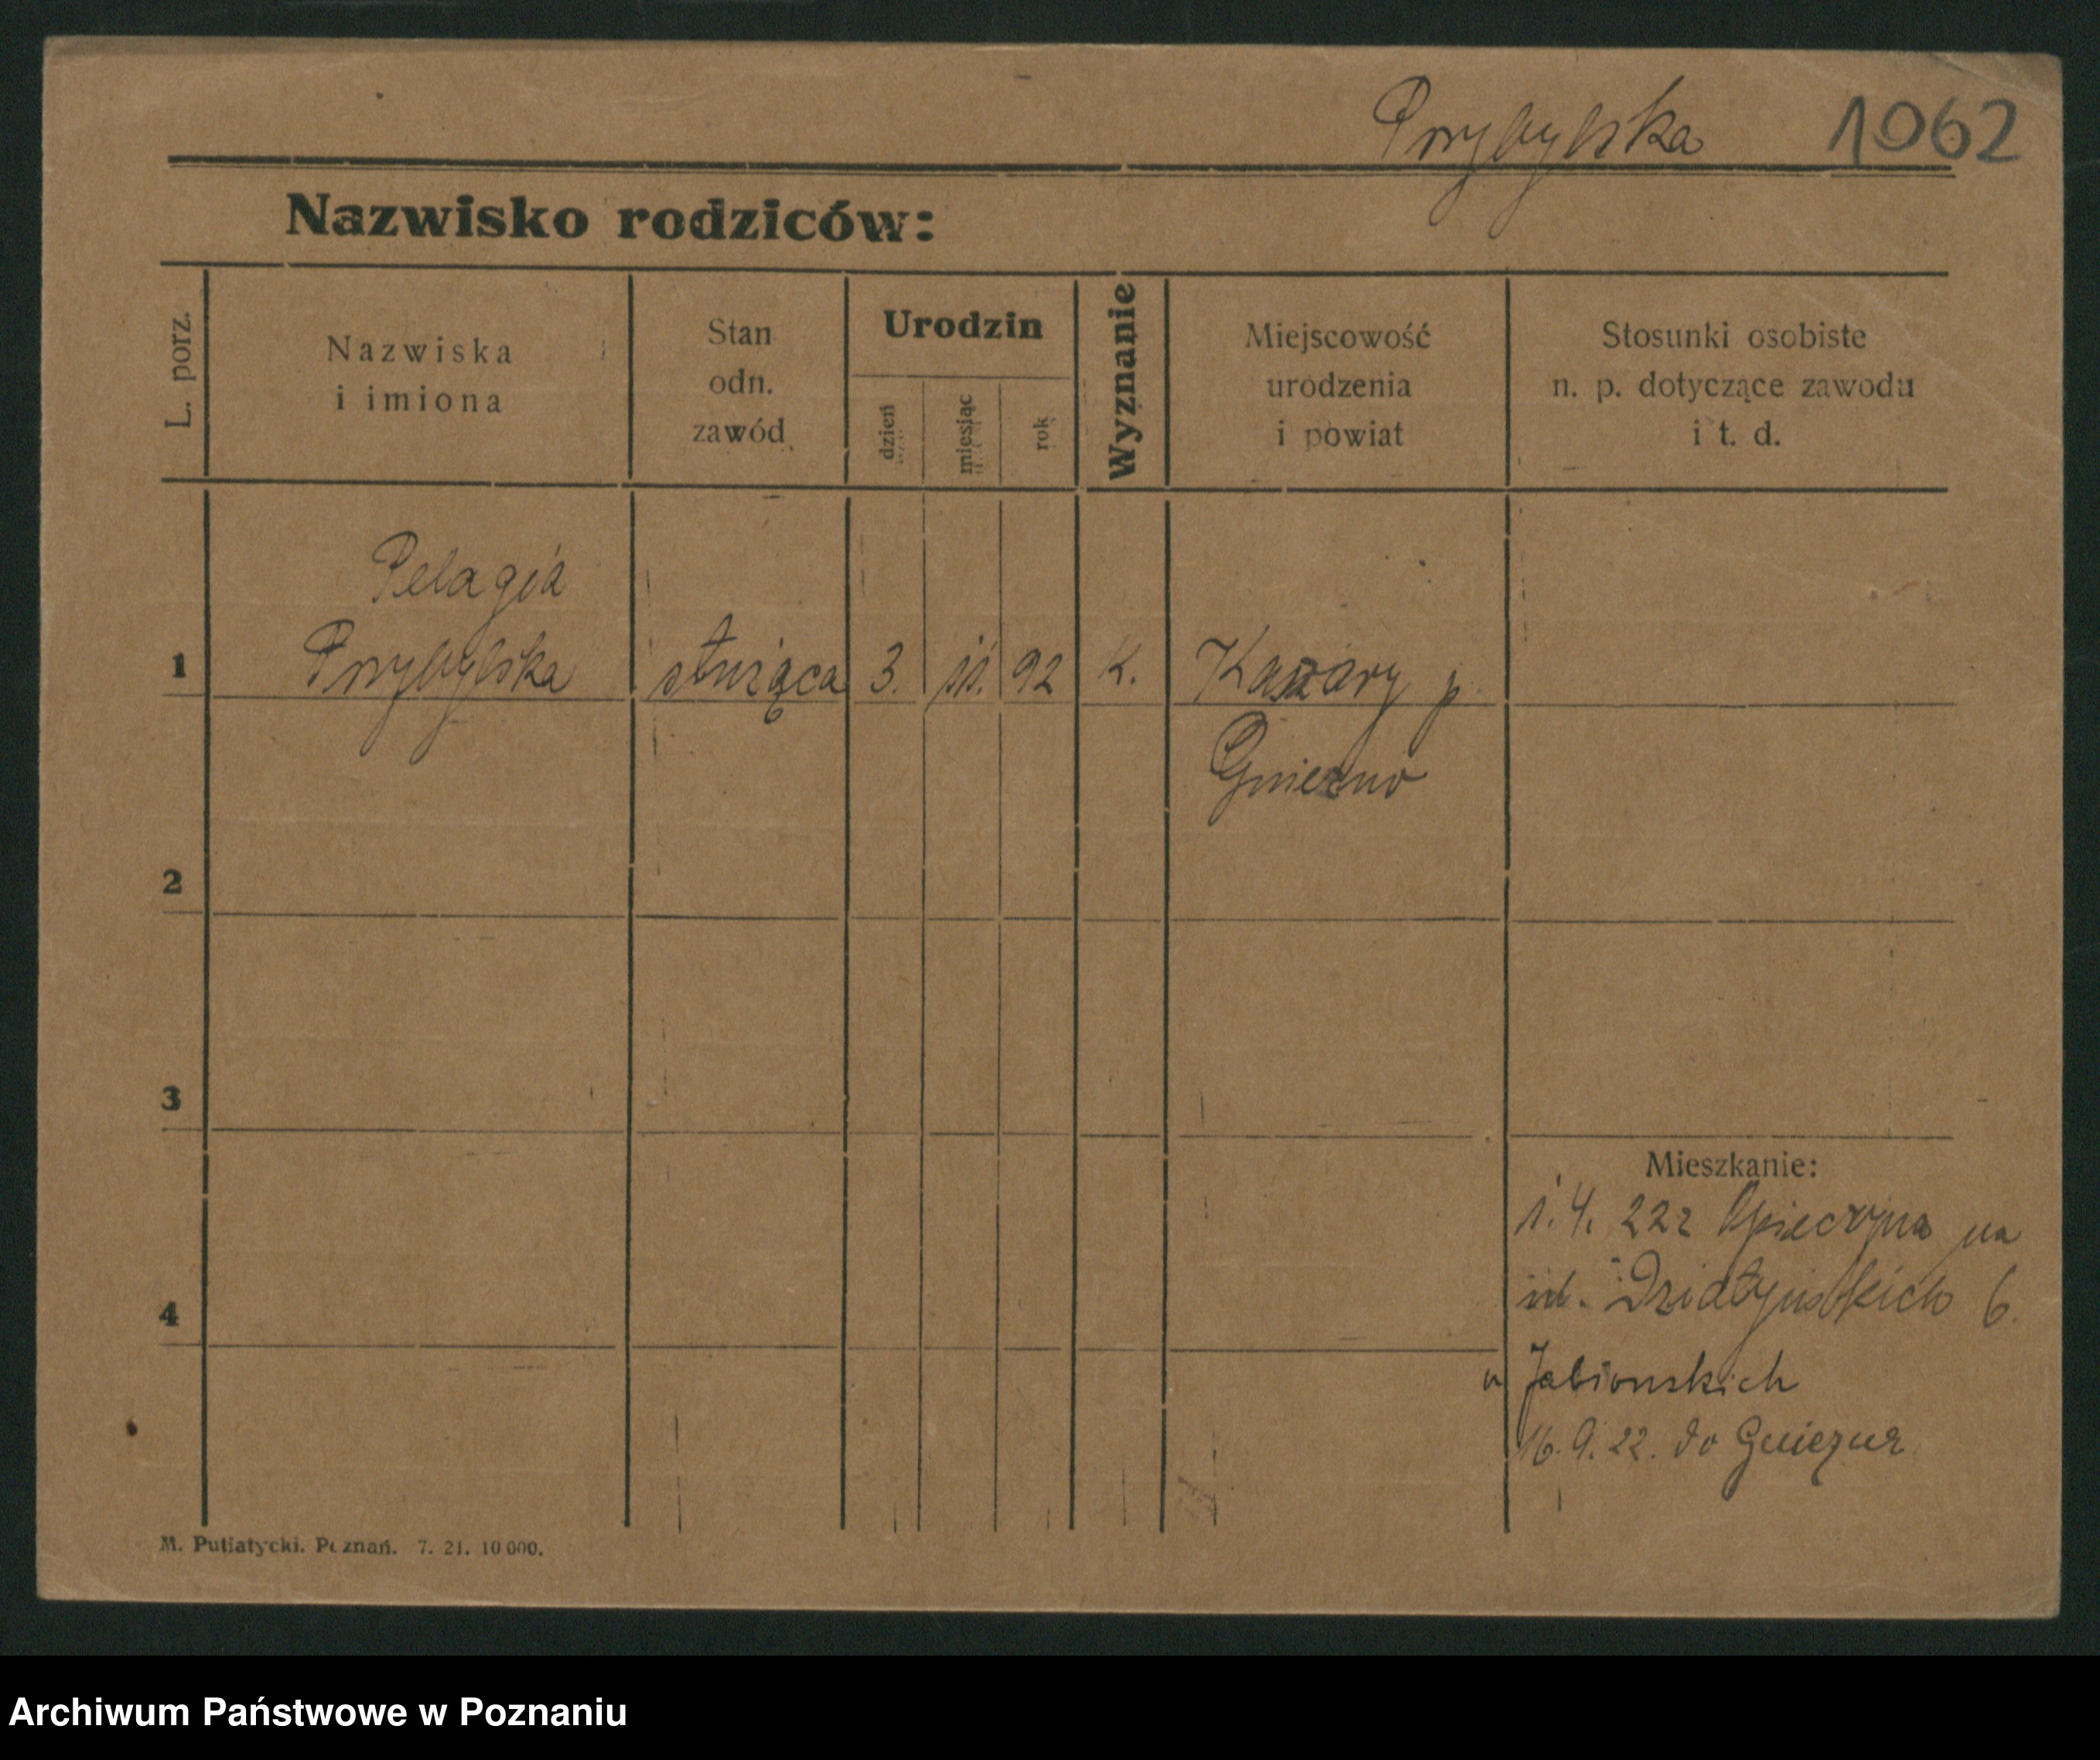 Przybylska 1062
Nazwisko rodziców:
L. porz.
Nazwiska
i imiona
Stan
odn.
zawód
Urodzin
dzień
miesiąc
rok
Wyznanie
Miejscowość
urodzenia
i powiat
Stosunki osobiste
n. p. dotyczące zawodu
i t. d.
Pelagia
1 Przybylska służąca 3. 11. 92 K. p.
Gniezno
2
3
Mieszkanie:
1.4. 222 na
ul. Działyńskich 6.
4
u Jabłonskich
16. 9. 22. do Gniezna
M. Putiatycki. Poznań. 7. 21. 10 000.
Archiwum Państwowe w Poznaniu